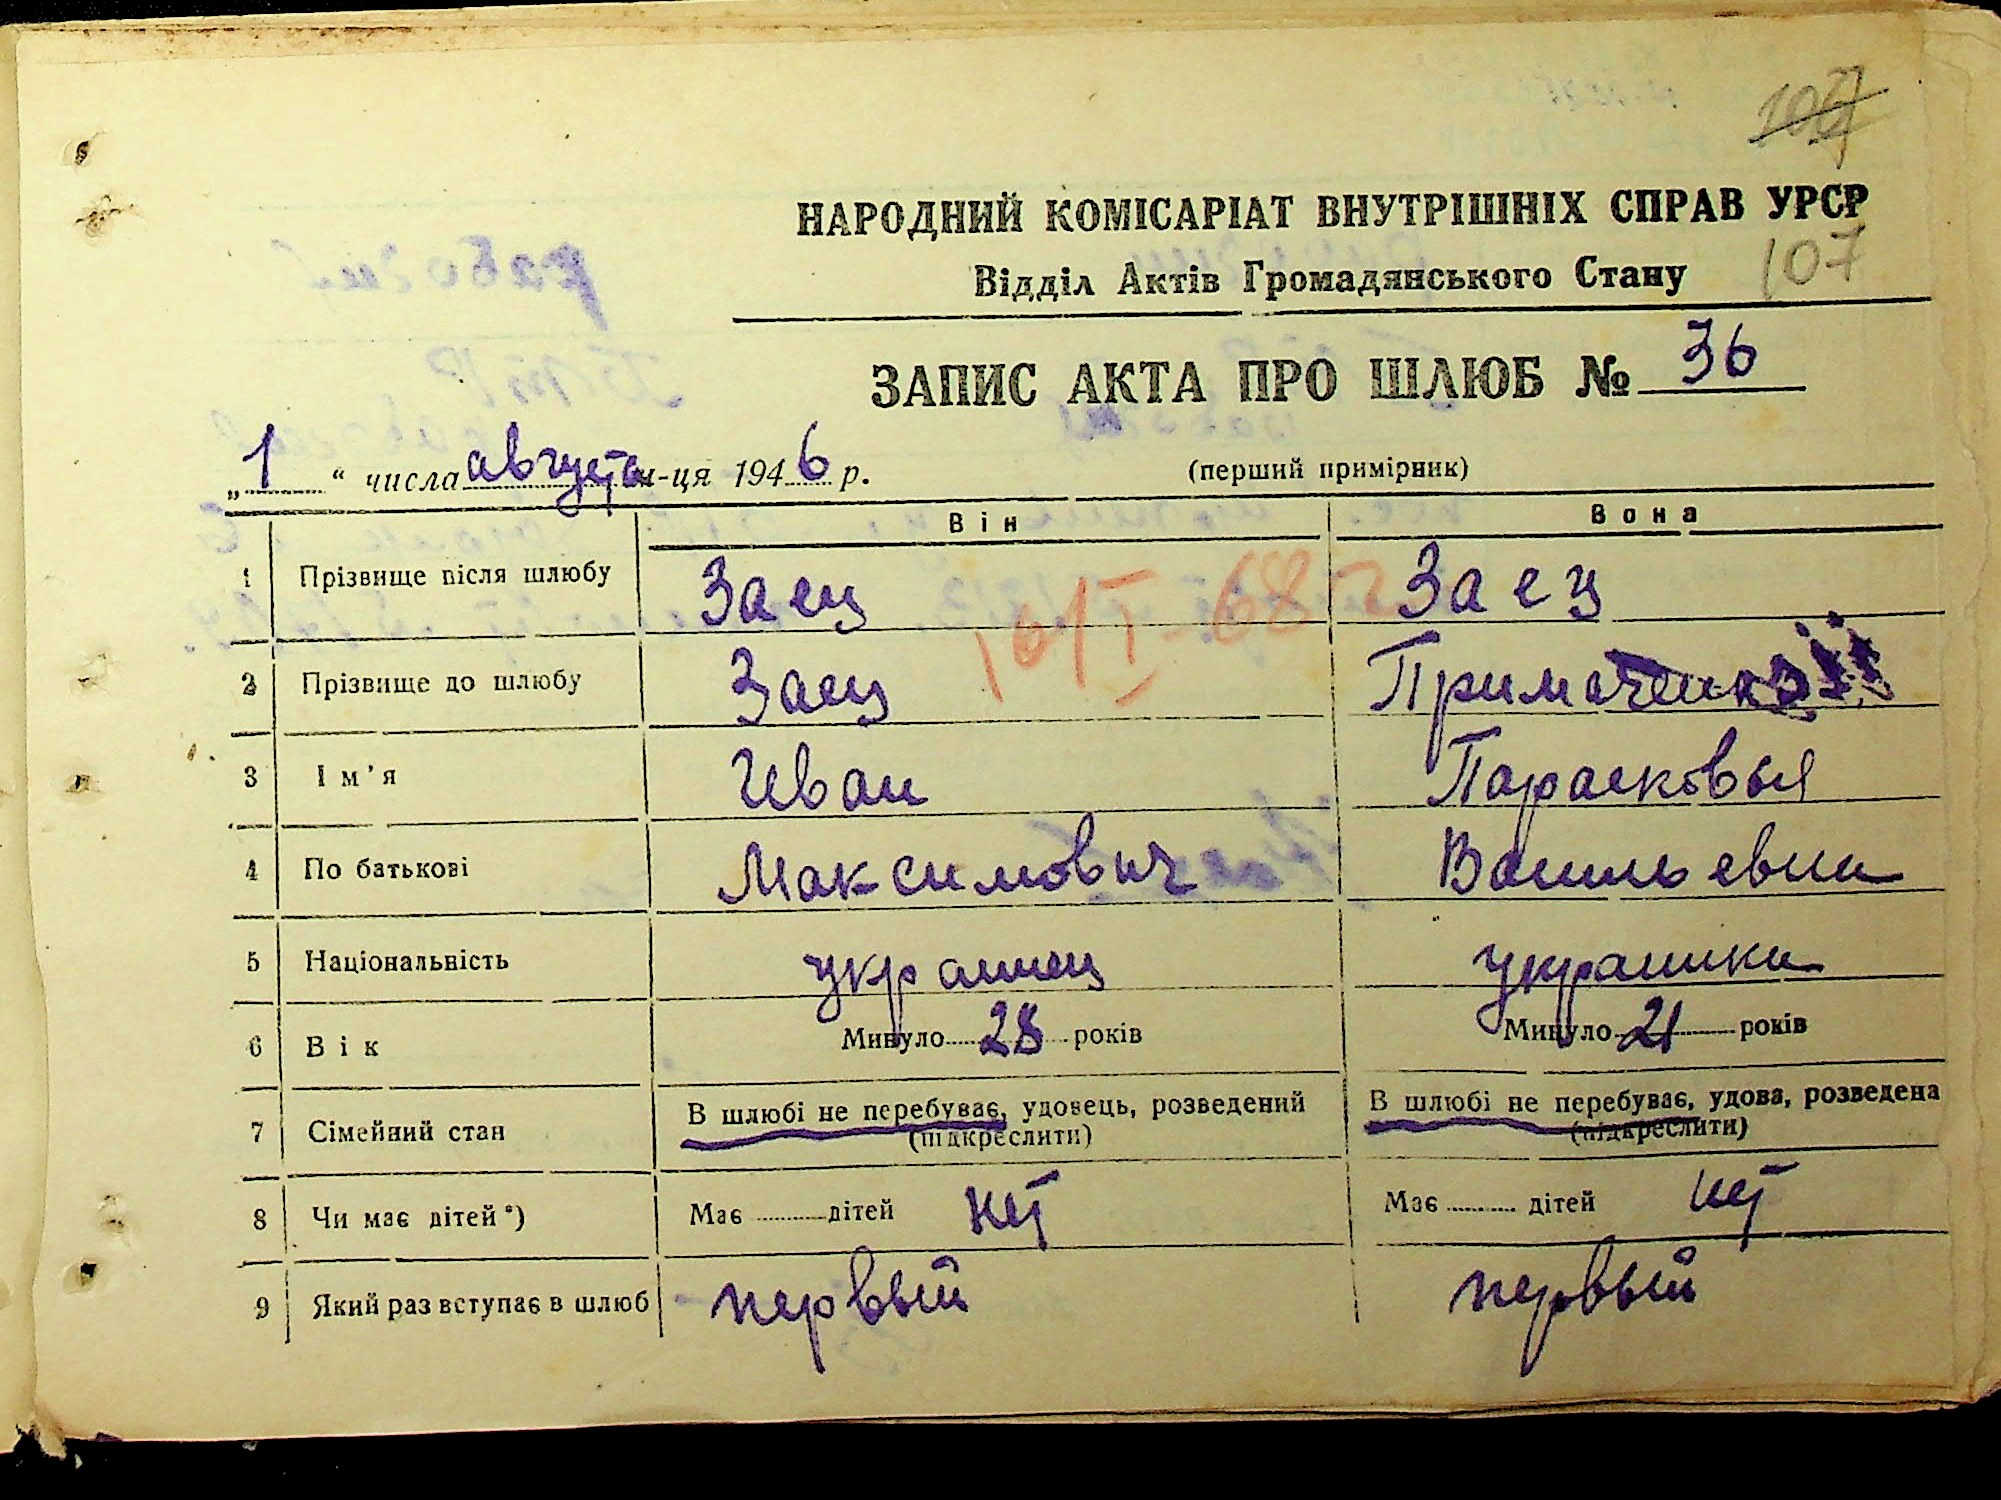 107
НАРОДНИЙ КОМІСАРІАТ ВНУТРІШНІХ СПРАВ УРСР
Відділ Актів Громадянського Стану 107
ЗАПИС АКТА ПРО ШЛЮБ № 36
„1“ числа августа м-ця 1946 р. (перший примірник)
Він Вона
1 Прізвище після шлюбу Заец Заец
2 Прізвище до шлюбу Заец Примаченко
3 Ім’я Иван Парасковья
4 По батькові Максимович Васильевна
5 Національність украинец украинка
6 Вік Минуло 28 років Минуло 21 років
7 Сімейний стан В шлюбі не перебуває, удовець, розведений В шлюбі не перебуває, удова, розведена
(підкреслити) (підкреслити)
8 Чи має дітей*) Має дітей нет Має дітей нет
9 Який раз вступає в шлюб первый первый